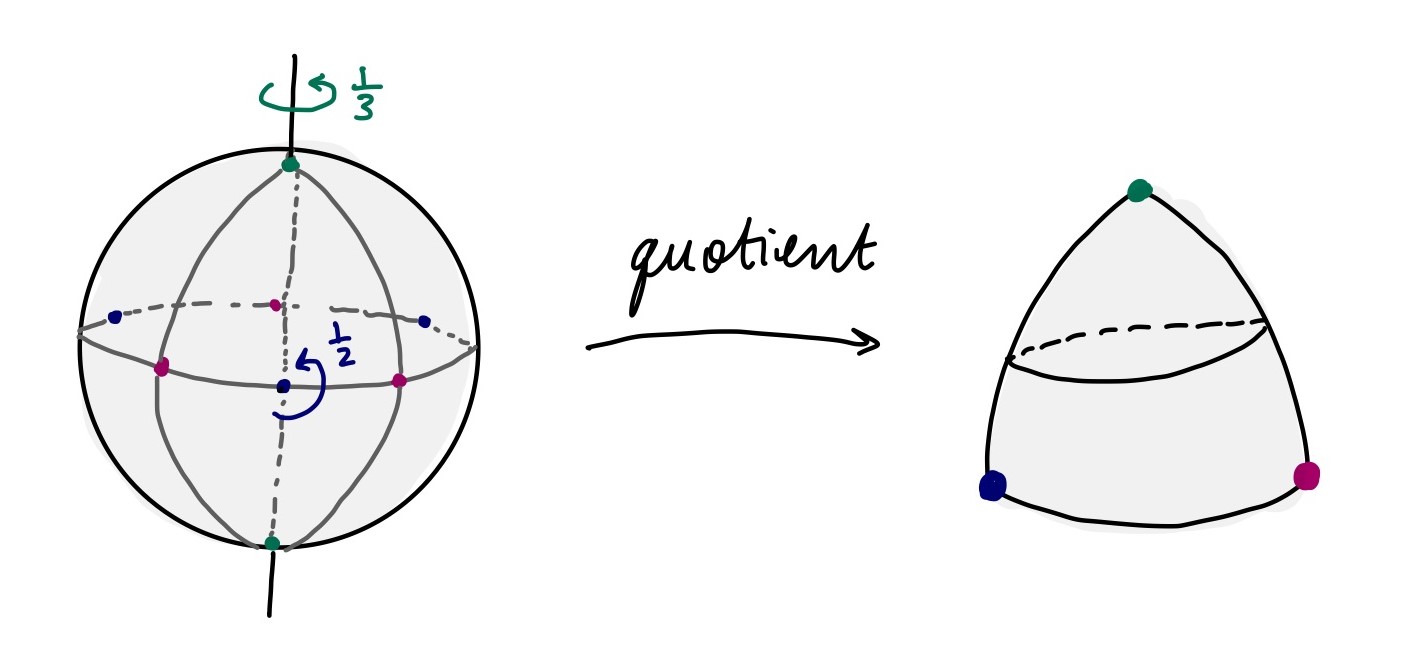 1/3
1/2
quotient